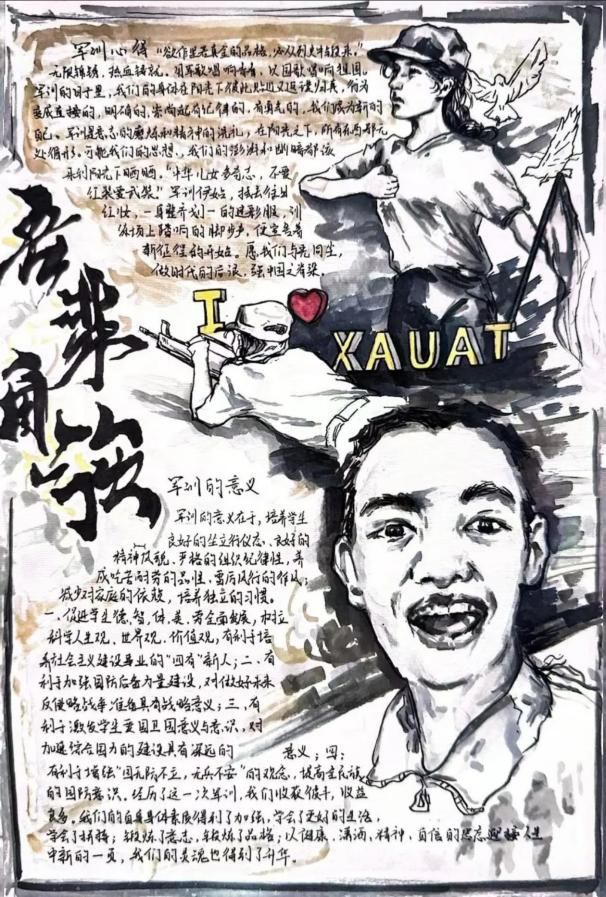 军训心得 "欲作坚若真金的品格,必从烈火中锻来。"
无限锦绣,热血铸就。用军歌唱响青春,以国歌唱响祖国。
军训的日子里,我们的身体在阳光下
变成直接的,明确的,有纪律的,有勇气的,我们成为新的
自己。军训是意志的磨炼和精神的洗礼,在阳光之下,所有东西都无
处循形。可能我们的思想、我们的澎湃和幽暗都该
来到阳光下晒晒。"中华儿女多奇志,不爱
红装爱武装。"军训伊始,褪去往日
红妆,一身整齐划一的迷彩服,训
练场上踏响的脚步声,便宣告着
新征程的开始。愿我们与光同尘,
做时代的后浪,强中国之脊梁。
吾辈自强
I XAUAT
军训的意义
军训的意义在于,培养学生
良好的坐立行仪态、良好的
精神风貌、严格的组织纪律性,养
成吃苦耐劳的品性,雷厉风行的作风,
减少对家庭的依赖,培养独立的习惯。
一、促进学生德、智、体、美、劳全面发展,树立
科学人生观、世界观、价值观,有利于培
养社会主义建设事业的"四有"新人;二、有
利于加强国防后备力量建设,对做好未来
反侵略战争准备具有战略意义;三、有
利于激发学生爱国卫国意义与意识,对
加速综合国力的建设具有深远的 意义;四:
有利于增强"国无防不立,民无兵不安"的观念,提高全民族
的国防意识。经历了这一次军训,我们收获很丰,收益
良多。我们的自身身体素质得到了加强,学会了更好的生活,
学会了拼搏;锻炼了意志,锻炼了品格;以健康、潇洒、精神、自信的姿态迎接人生
中新的一页,我们的灵魂也得到了升华。